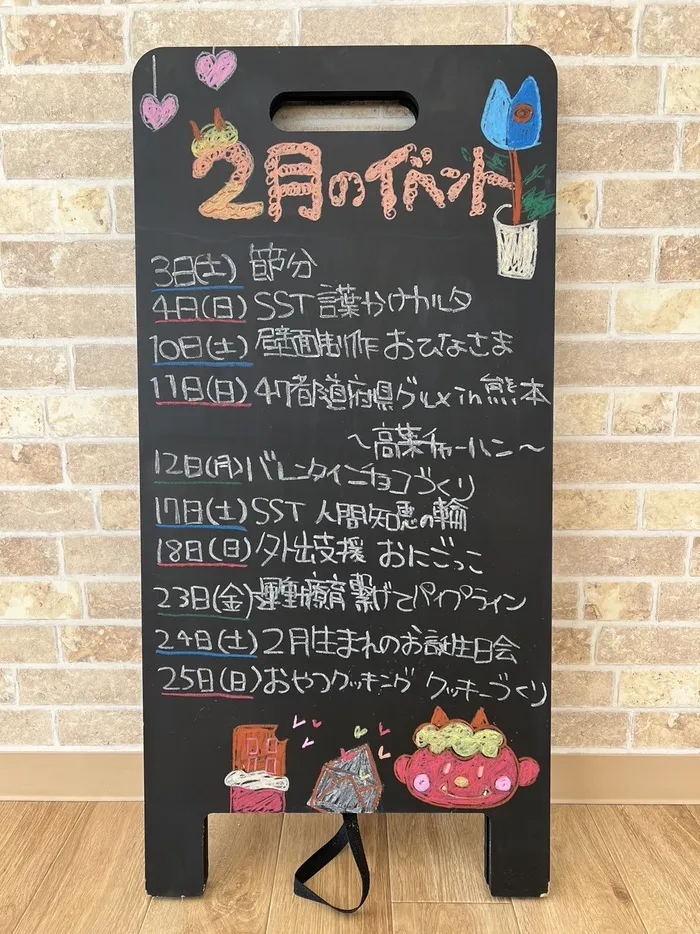 2月のイベント
3日(土) 節分
4日(日) SST 言葉かけカルタ
10日(土) 壁面制作 おひなさま
11日(日) 47都道府県グルメin熊本
～高菜チャーハン～
12日(月) バレンタインチョコづくり
17日(土) SST 人間知恵の輪
18日(日) 外出支援 おにごっこ
23日(金) 運動療育 繋げてパイプライン
24日(土) 2月生まれのお誕生日会
25日(日) おやつクッキング クッキーづくり